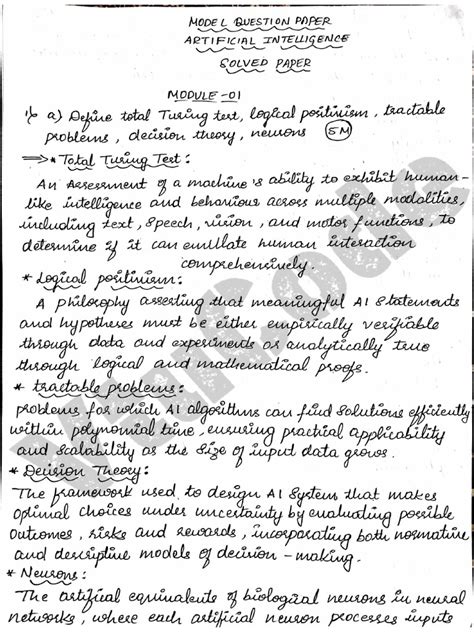 MODEL QUESTION PAPER
ARTIFICIAL INTELLIGENCE
SOLVED PAPER
MODULE-01
1) a) Define total Turing test, logical positivism, tractable
problems, decision theory, neurons 5M
* Total Turing Test:
An Assessment of a machine's ability to exhibit human-
like intelligence and behaviour across multiple modalities,
including text, speech, vision, and motor functions, to
determine if it can emulate human interaction
comprehensively.
* Logical positivism:
A philosophy asserting that meaningful AI statements
and hypotheses must be either empirically verifiable
through data and experiments or analytically true
through logical and mathematical proofs.
* tractable problems:
problems for which AI algorithms can find solutions efficiently
within polynomial time, ensuring practical applicability
and scalability as the size of input data grows.
* Decision Theory:
The framework used to design AI system that makes
optimal choices under uncertainty by evaluating possible
outcomes, risks and rewards, incorporating both normative
and descriptive models of decision-making.
* Neurons:
The artificial equivalents of biological neurons in neural
networks, where each artificial neuron processes inputs